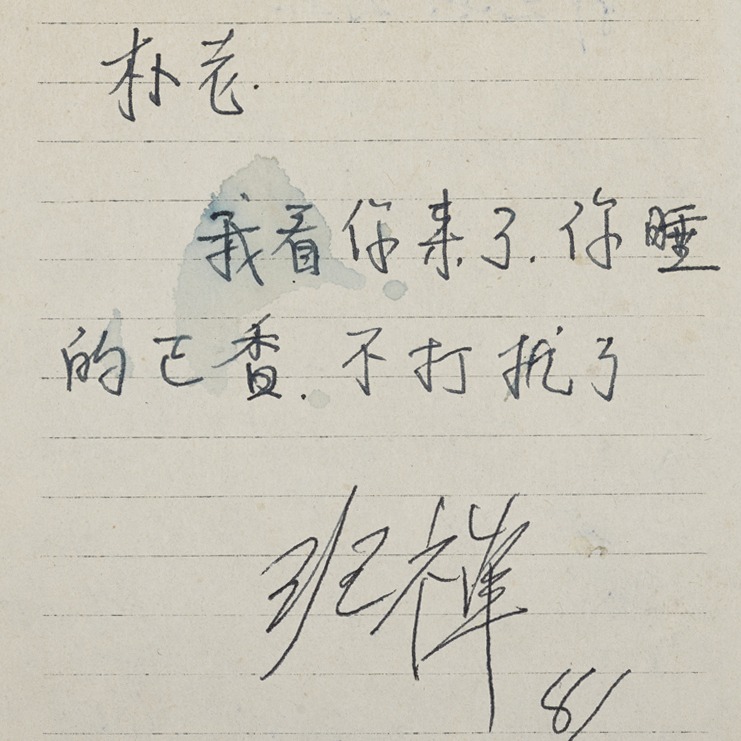 朴老.
我看你来了.你睡
的正香.不打扰了
班禅
8/